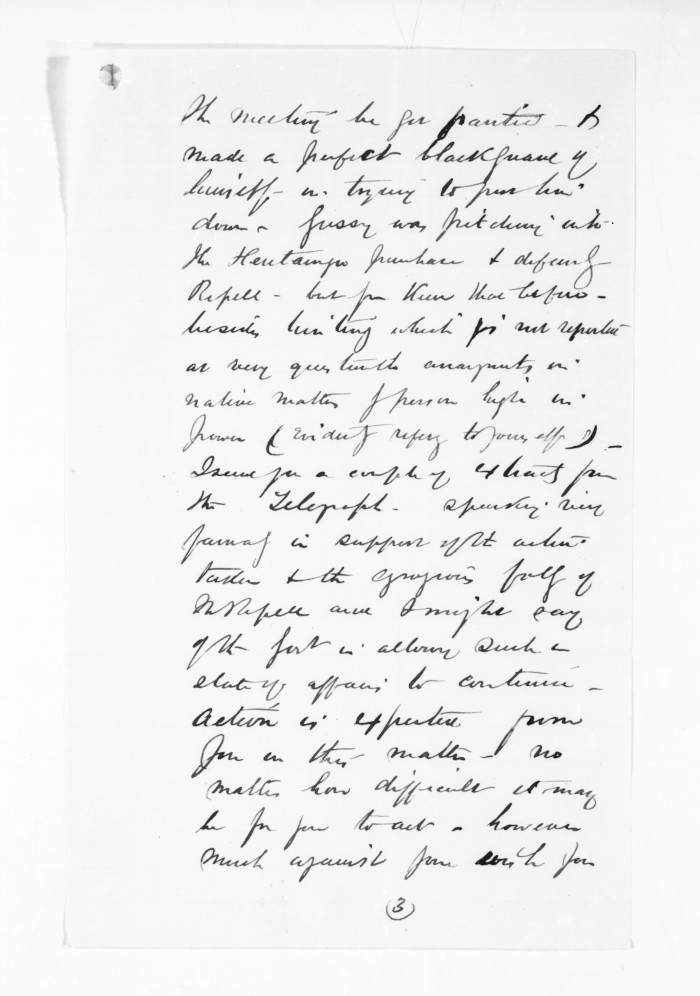 the meeting he got
made a perfect blackguard of
himself in trying to put him
down - Gussy was pitching into
the Heretaunga purchase & defending
Russell - but from then
besides hinting which is not reported
at very questionable arrangements in
native matters of person high in
power (Evidently refering to yourself) -
I send you a couple of extracts from
the Telegraph - speaking very
in support of the action
taken & the egregious folly of
and I might say
of the Govt in allowing such a
state of affairs to continue -
Action is expected from
you in this matter - no
matter how difficult it may
be for you to act - however
much against your wish you
(3)